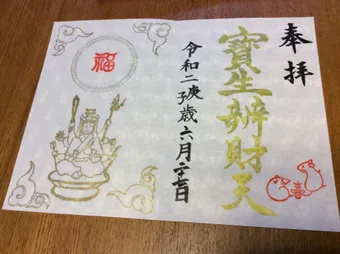 奉拝
寶生辨財天
令和二庚子歳六月二十七日
福